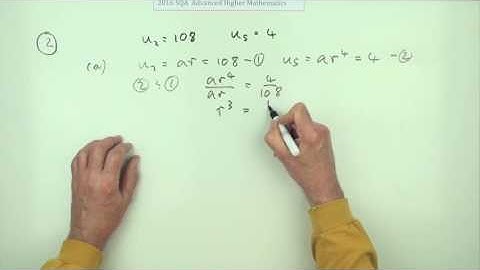 2016 SQA Advanced Higher Mathematics
② u₂ = 108 u₅ = 4
(a) u₂ = ar = 108 – ① u₅ = ar⁴ = 4 – ②
② ÷ ① ar⁴/ar = 4/108
r³ =